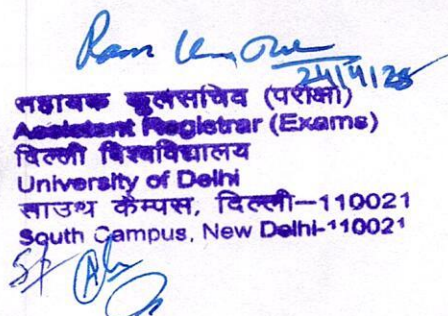 24/4/25
सहायक कुलसचिव (परीक्षा)
Assistant Registrar (Exams)
दिल्ली विश्वविद्यालय
University of Delhi
साउथ कैम्पस, दिल्ली–110021
South Campus, New Delhi-110021